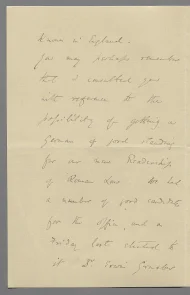 known in England.
You may perhaps remember
that I consulted you
with reference to the
possibility of getting a
German of good standing
for our new Readership
of Roman Law. We had
a number of good candidates
for the office, and on
Friday last elected to
it Dr